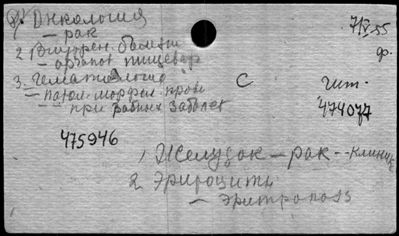 1. Онкология
— рак
7/IV 55
2 Внутрен. болезни
— органов пищевар
ф.
3. Гематология
— патол. морфол. крови
— при разных заболев
С
шт.
474077
475946
1, Желудок — рак -- клиника
2 Эритроциты
— эритропоэз